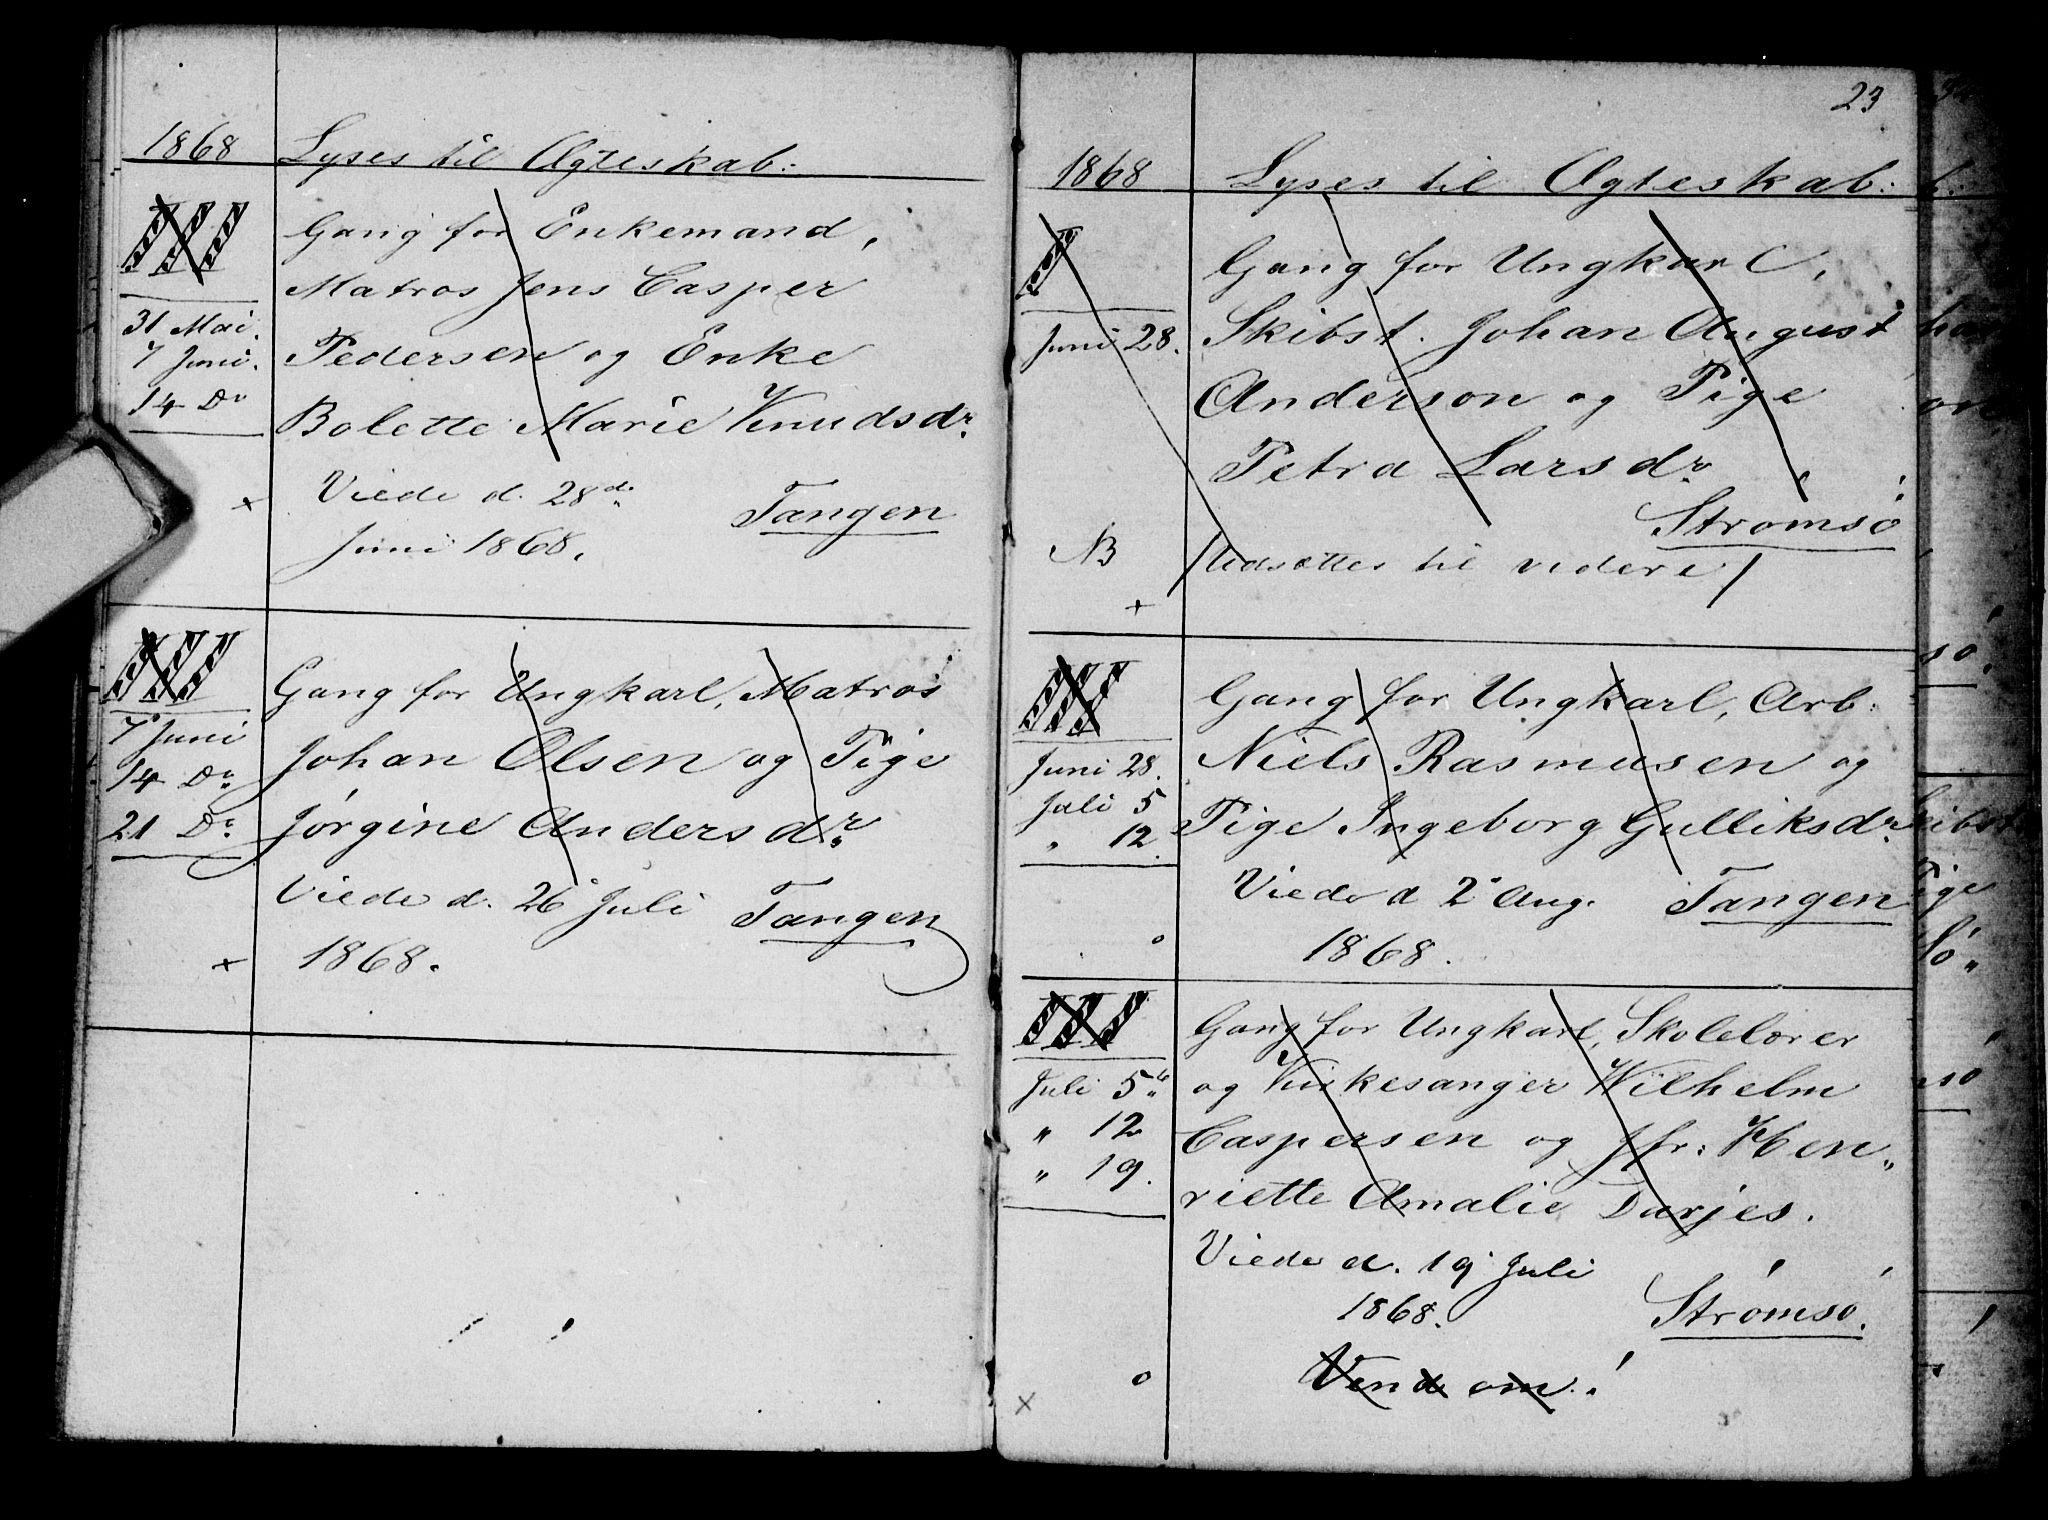 1868 Lyses til Ægteskab:
III Gang for Enkemand,
Matros Jens Casper
31 Mai. Pedersen og Enke
7 Juni.
14 Do Bolette Marie Knudsdr.
+ Viede d. 28de Tangen
Juni 1868.
III Gang for Ungkarl, Matros
7 Juni Johan Olsen og Pige
14 Do
21 Do Jørgine Andersdr.
Viede d. 26 Juli Tangen
+ 1868.
23
1868 Lyses til Ægteskab:
I Gang for Ungkarl,
Juni 28. Skibst. Johan August
Anderson og Pige
Petra Larsdr.
Strømsø
NB /Udsættes til videre/
+
III Gang for Ungkarl, Arb:
Juni 28. Niels Rasmusen og
Juli 5
„ 12. Pige Ingeborg Gulliksdr.
Viede d 2 Aug. Tangen
o 1868.
III Gang for Ungkarl, Skolelærer
Juli 5 og Kirkesanger Wilhelm
„ 12 Caspersen og Jfr: Hen„
„ 19. riette Amalie Darjes.
Viede d. 19 Juli
1868. Strømsø.
o Vend om!
x